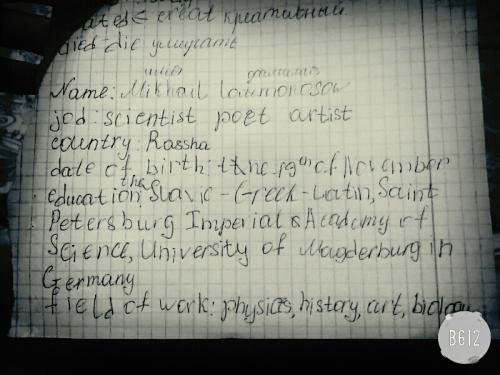 creat креативный
died-die умирать
имя фамилия
Name: Mikhail Lomonosow
jod: scientist poet artist
country: Rassha
date of birth: the 19th of November
education: the Slavic-Greek-Latin, Saint
Petersburg Imperial Academy of
Science, University of Magderburg in
Germany
field of work: physics, history, art, biology
B612